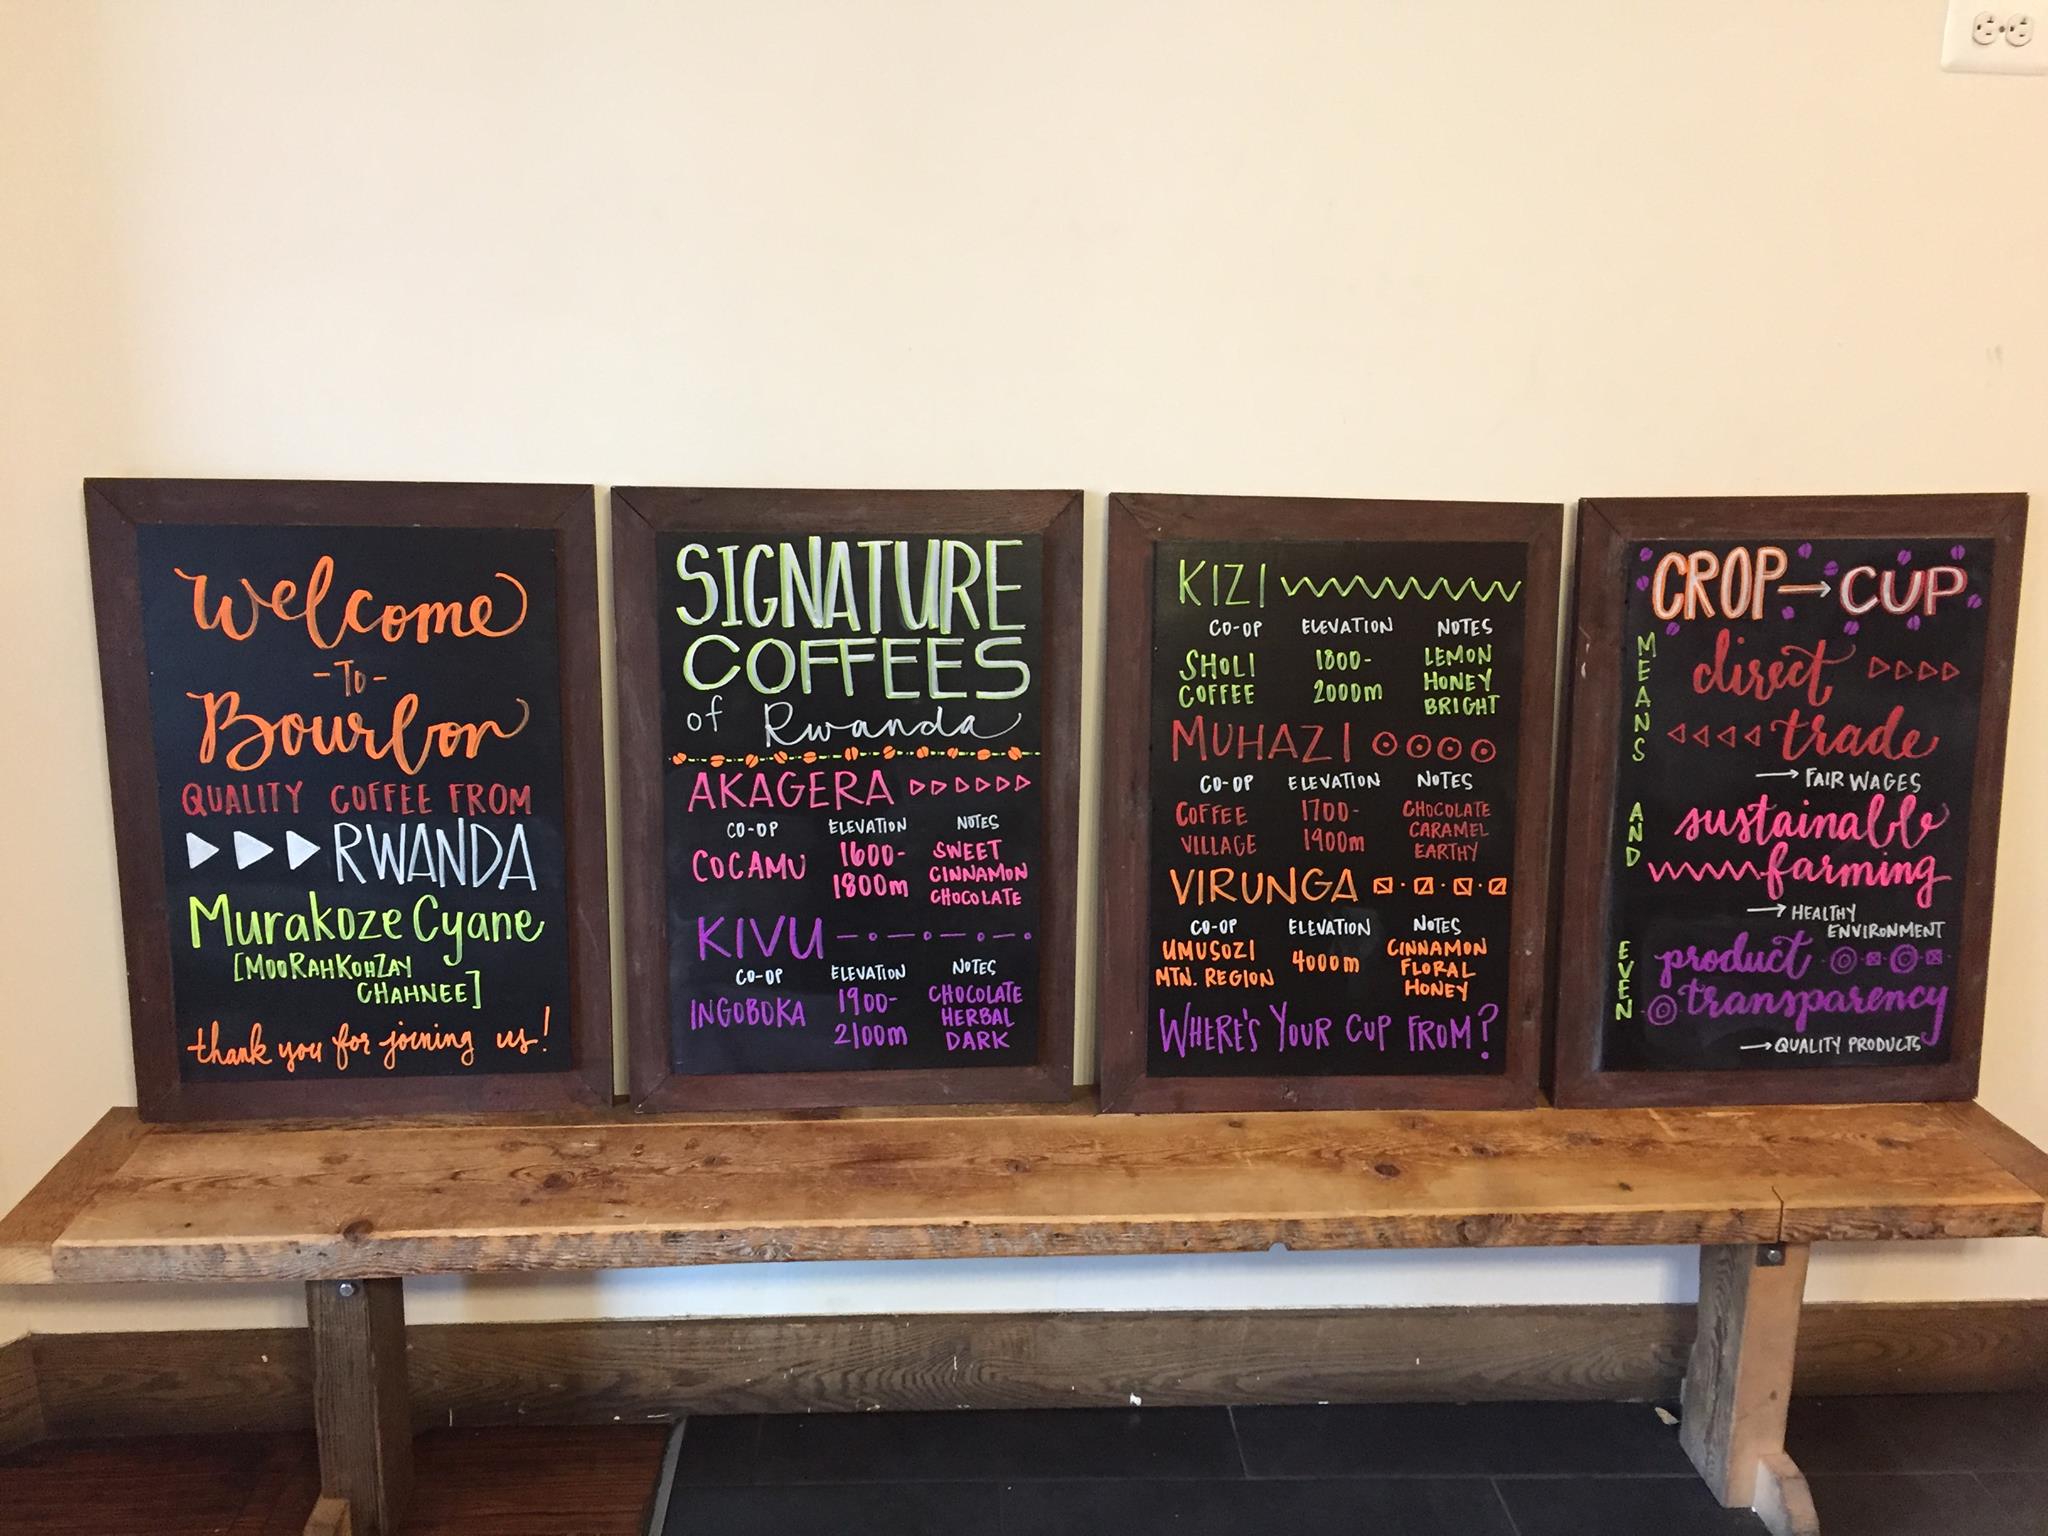 Welcome
-To-
Bourbon
QUALITY COFFEE FROM
RWANDA
Murakoze Cyane
[MOORAHKOHZAY
CHAHNEE]
thank you for joining us!
SIGNATURE
COFFEES
of Rwanda
AKAGERA
CO-OP ELEVATION NOTES
COCAMU 1600-1800m SWEET CINNAMON CHOCOLATE
KIVU
CO-OP ELEVATION NOTES
INGOBOKA 1900-2100m CHOCOLATE HERBAL DARK
KIZI
CO-OP ELEVATION NOTES
SHOLI COFFEE 1800-2000m LEMON HONEY BRIGHT
MUHAZI
CO-OP ELEVATION NOTES
COFFEE VILLAGE 1700-1900m CHOCOLATE CARAMEL EARTHY
VIRUNGA
CO-OP ELEVATION NOTES
UMUSOZI MTN. REGION 4000m CINNAMON FLORAL HONEY
WHERE'S YOUR CUP FROM?
CROP→CUP
MEANS
direct
trade
→FAIR WAGES
AND
sustainable
farming
→HEALTHY
ENVIRONMENT
EVEN
product
transparency
→QUALITY PRODUCTS